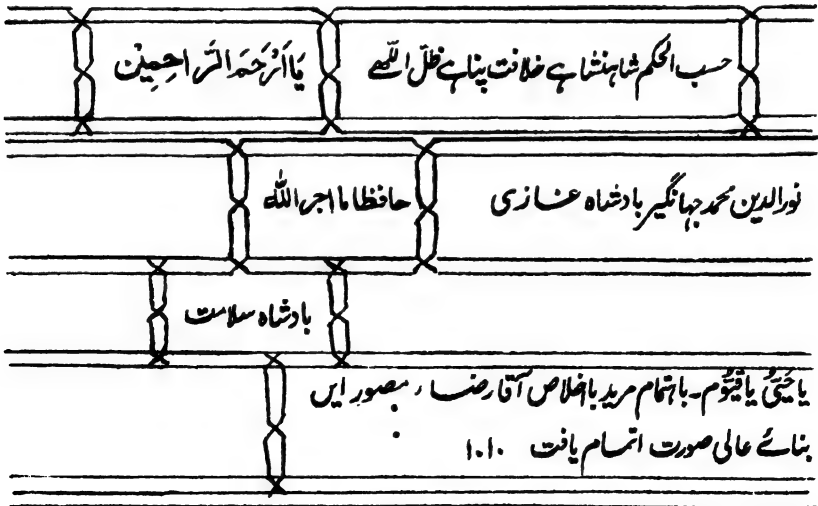 حسب الحکم شاہنشاہے خلافت پناہے ظلّ اللّٰھے یَا اَرْحَمَ الرَّاحِمِیْن
نورالدین محمد جہانگیر بادشاہ غازی حافظا ما اجر اللّٰہ
بادشاہ سلامت
یا حَیُّ یا قَیُّوم۔ باہتمام مرید بااخلاص آقا رضاء مصور ایں
بنائے عالی صورت اتمام یافت ۱۰۱۰